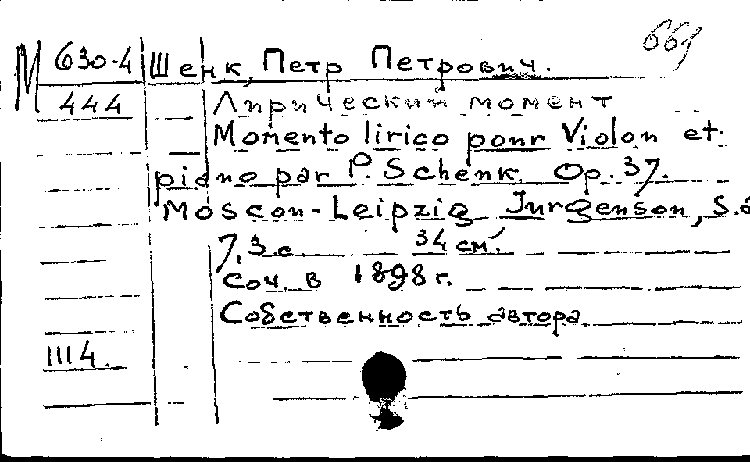 669
М 630-4 Шенк, Петр Петрович.
444 Лирический момент
Momento lirico pour Violon et
piano par P. Schenk. Op. 37.
Moscou-Leipzig Jurgenson, S.a
7,3 с. 34 см.
Соч. в 1898 г.
Собственность автора
1114.